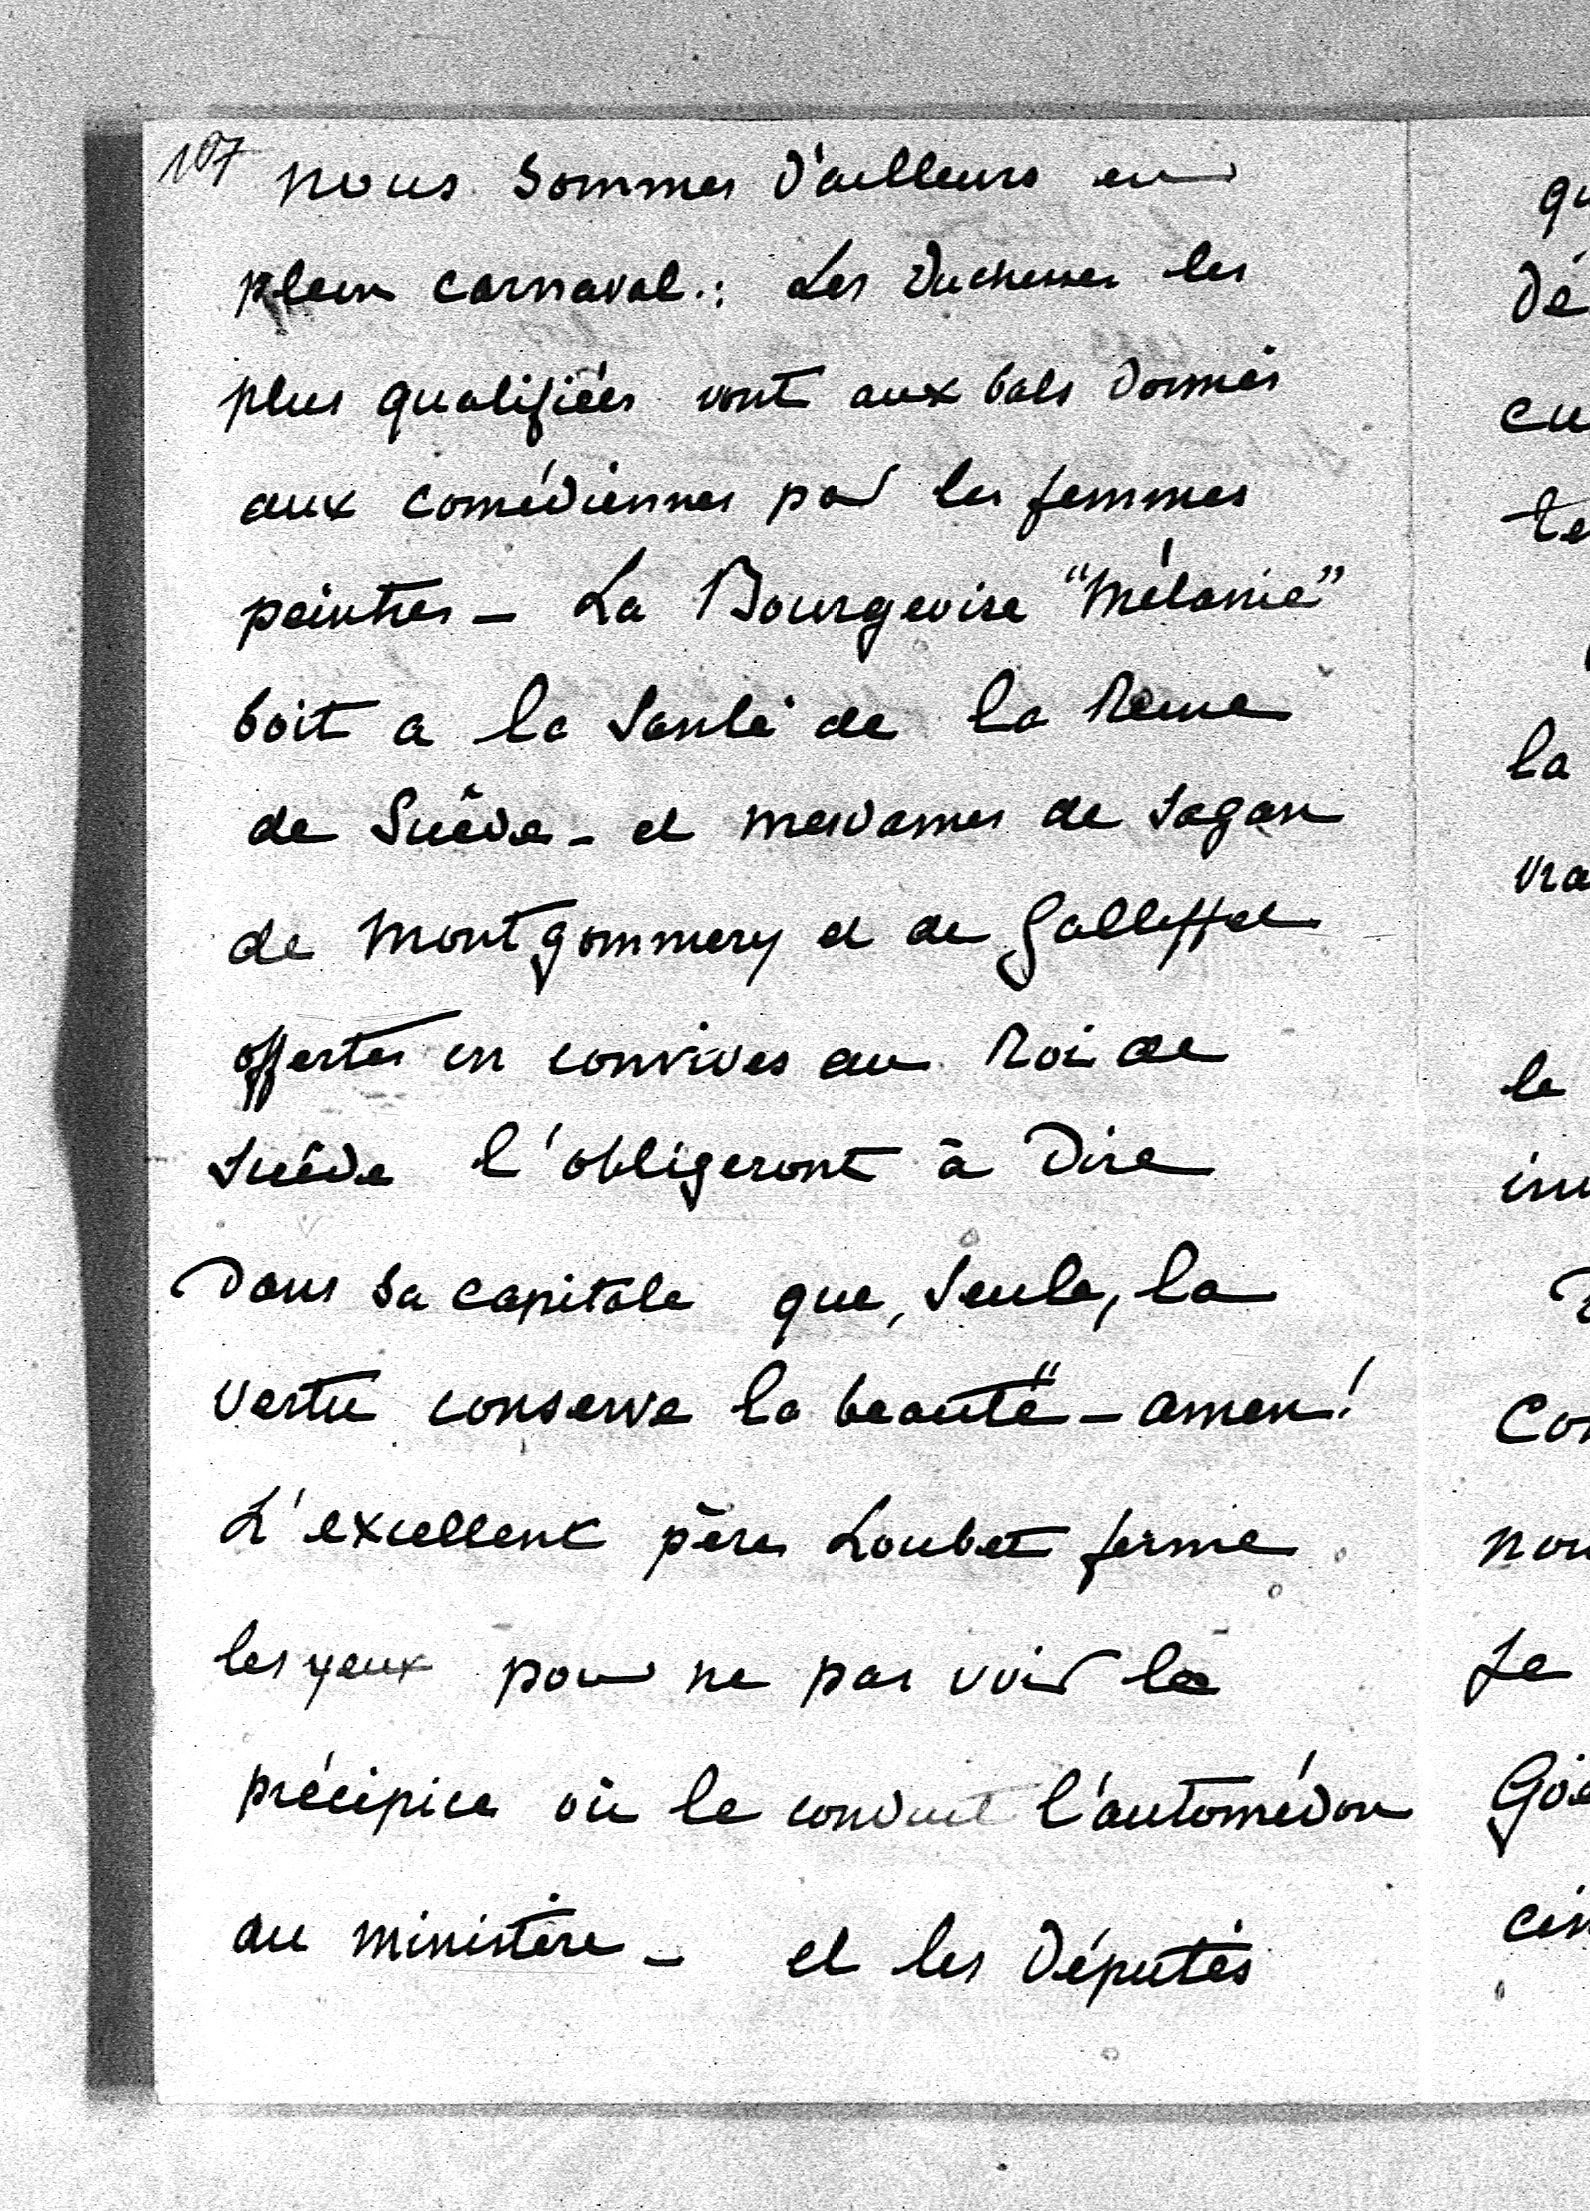 107
nous sommes d'ailleurs en
plein carnaval.: Les Duchesses les
plus qualifiées vont aux bals donnés
aux comédiennes par les femmes
peintres - La Bourgeoise "Mélanie"
boit a la santé de la Reine
de Suède - et mesdames de Sagan
de Montgommery et de Galliffet
offertes en convives au Roi de
Suède l'obligeront à dire
dans sa capitale que, seule, la
vertu conserve la beauté" - amen!
L'excellent père Loubet ferme
les yeux pour ne pas voir le
précipice où le conduit l'automédon
du ministère - et les députés
qu
dé
cu
te
la
vra
le
inv
Con
nou
se
Goe
cin